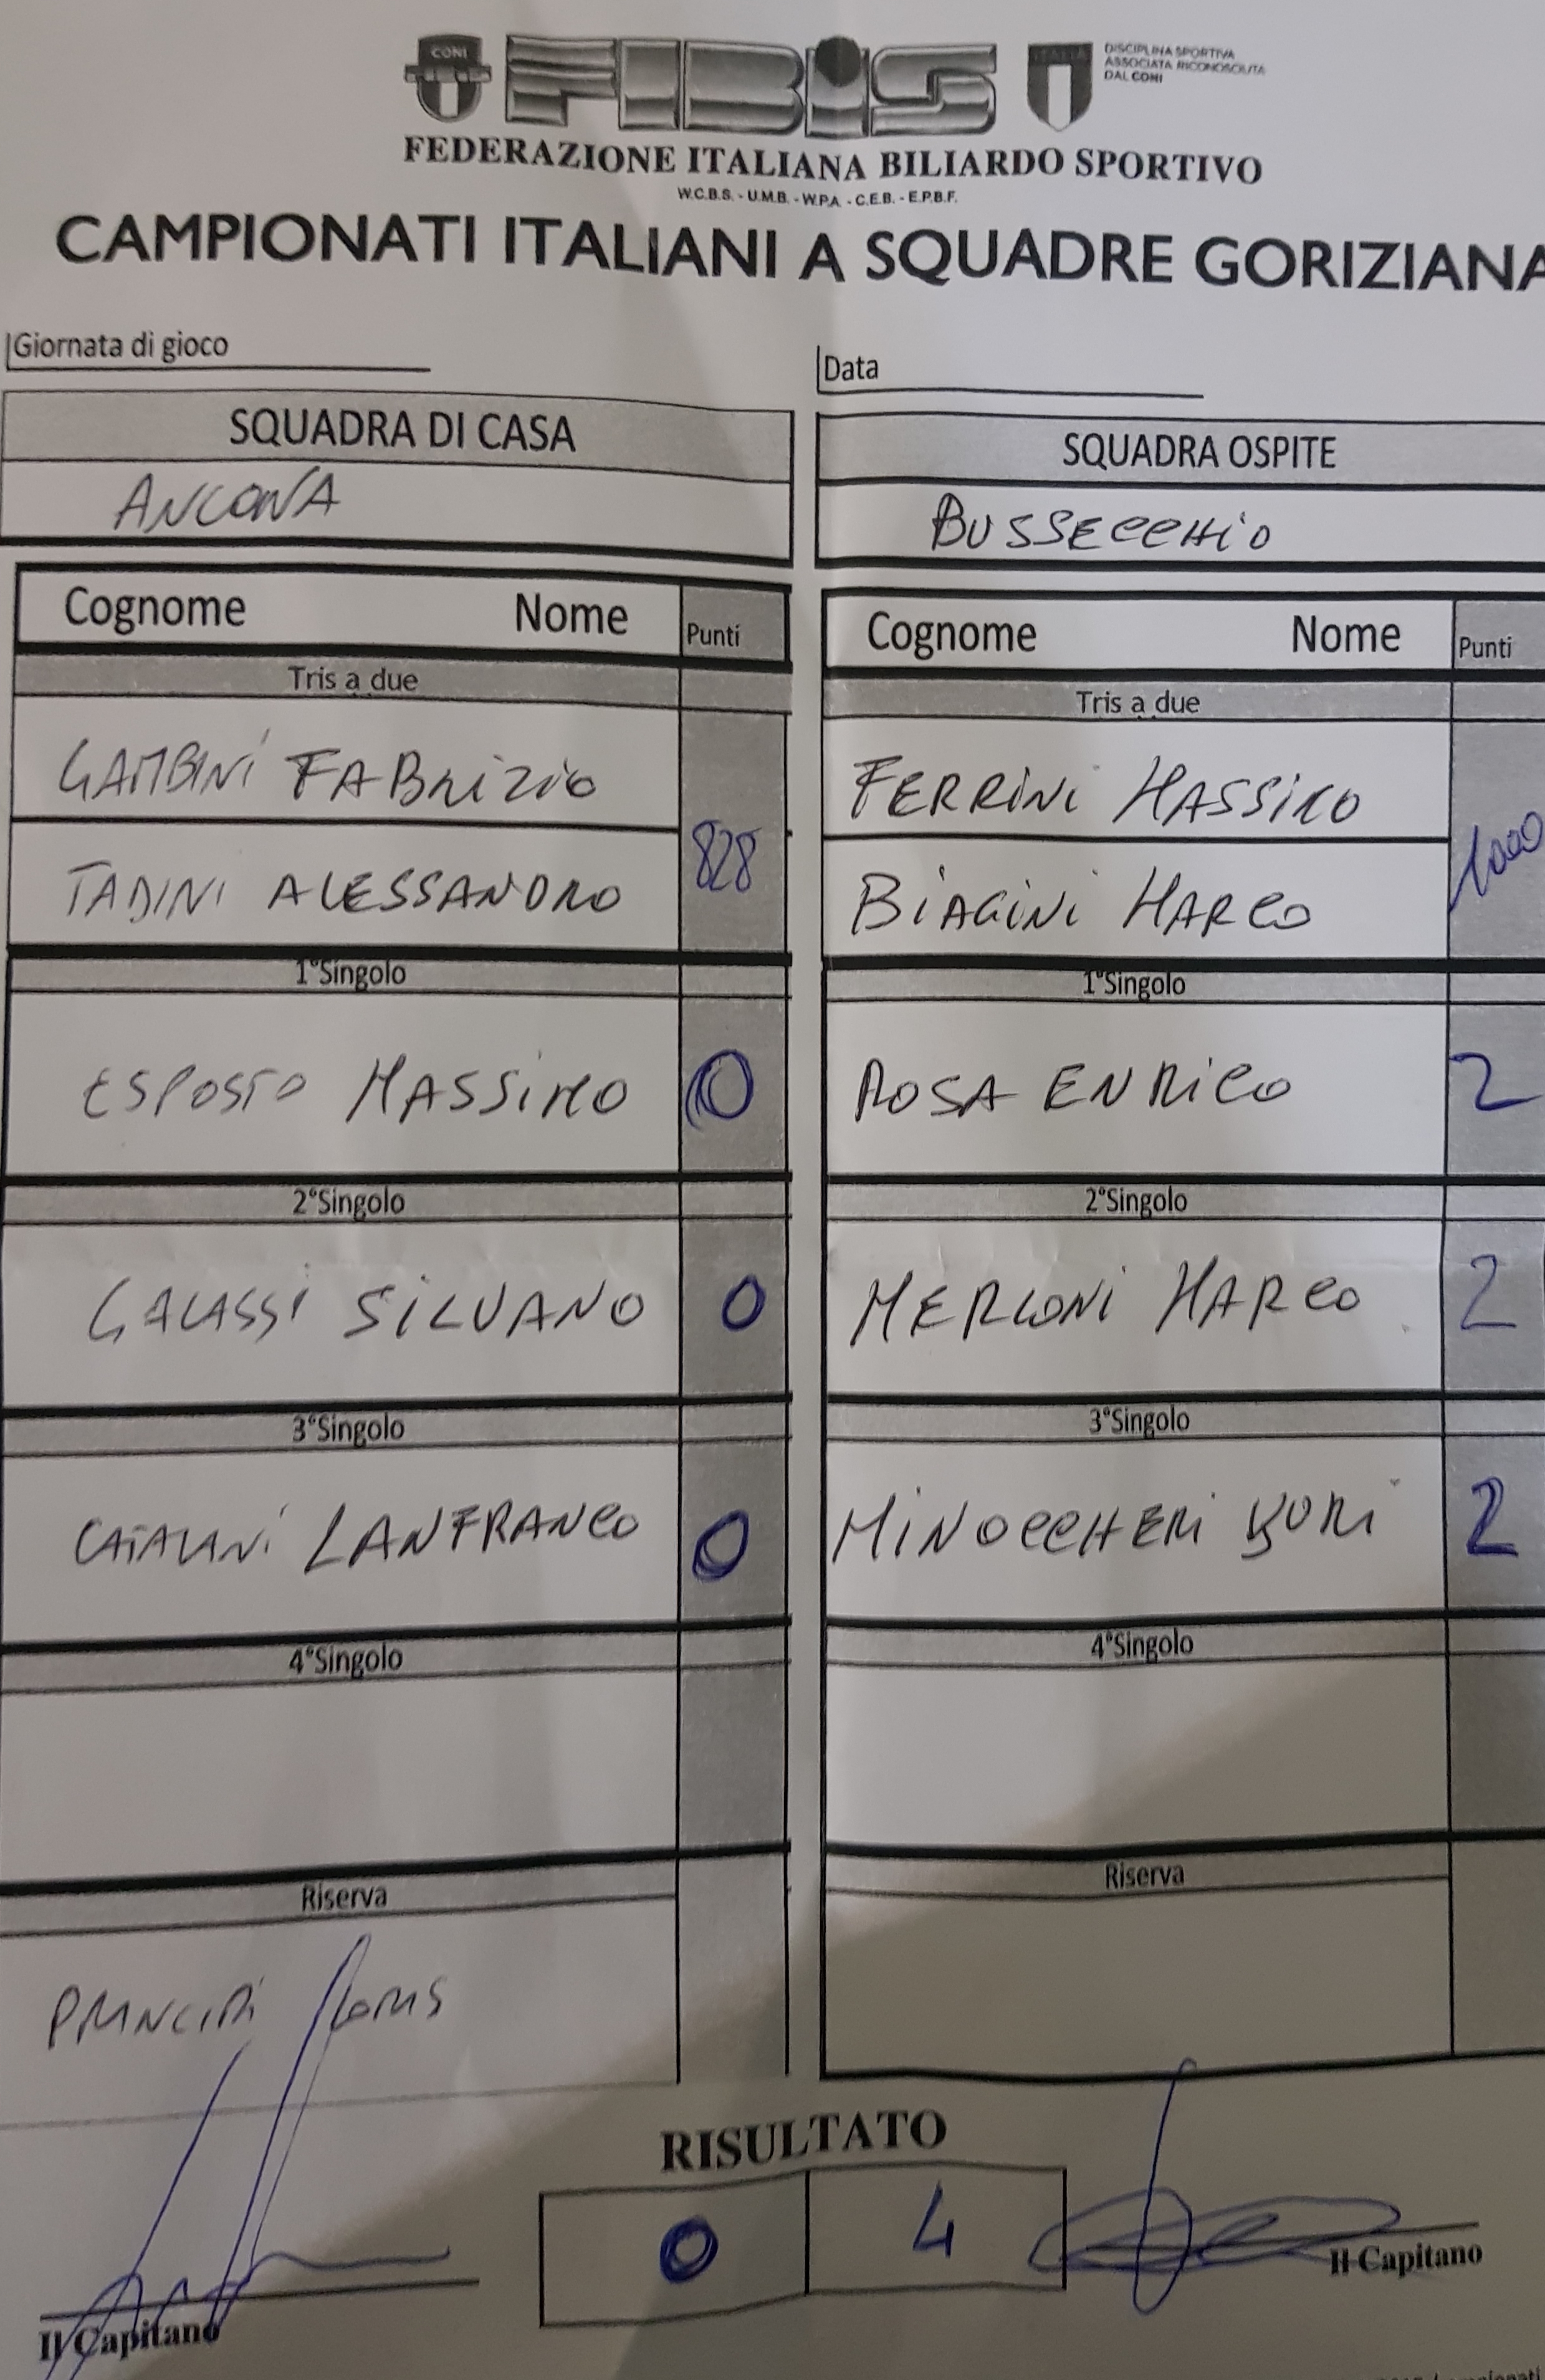 CONI FIBIS ITALIA DISCIPLINA SPORTIVA
ASSOCIATA RICONOSCIUTA
DAL CONI
FEDERAZIONE ITALIANA BILIARDO SPORTIVO
W.C.B.S. - U.M.B. - W.P.A. - C.E.B. - E.P.B.F.
CAMPIONATI ITALIANI A SQUADRE GORIZIANA
Giornata di gioco
Data
SQUADRA DI CASA
ANCONA
SQUADRA OSPITE
BUSSECCHIO
Cognome Nome Punti
Tris a due
GAMBINI FABRIZIO
828
TADINI ALESSANDRO
1°Singolo
ESPOSTO MASSIMO 0
2°Singolo
GALASSI SILVANO 0
3°Singolo
CATALANI LANFRANCO 0
4°Singolo
Riserva
PRINCIPI LORIS
Cognome Nome Punti
Tris a due
FERRINI MASSIMO
1000
BIAGINI MARCO
1°Singolo
ROSA ENRICO 2
2°Singolo
MERLONI MARCO 2
3°Singolo
MINOCCHERI YURI 2
4°Singolo
Riserva
RISULTATO
0 4
Il Capitano
Il Capitano